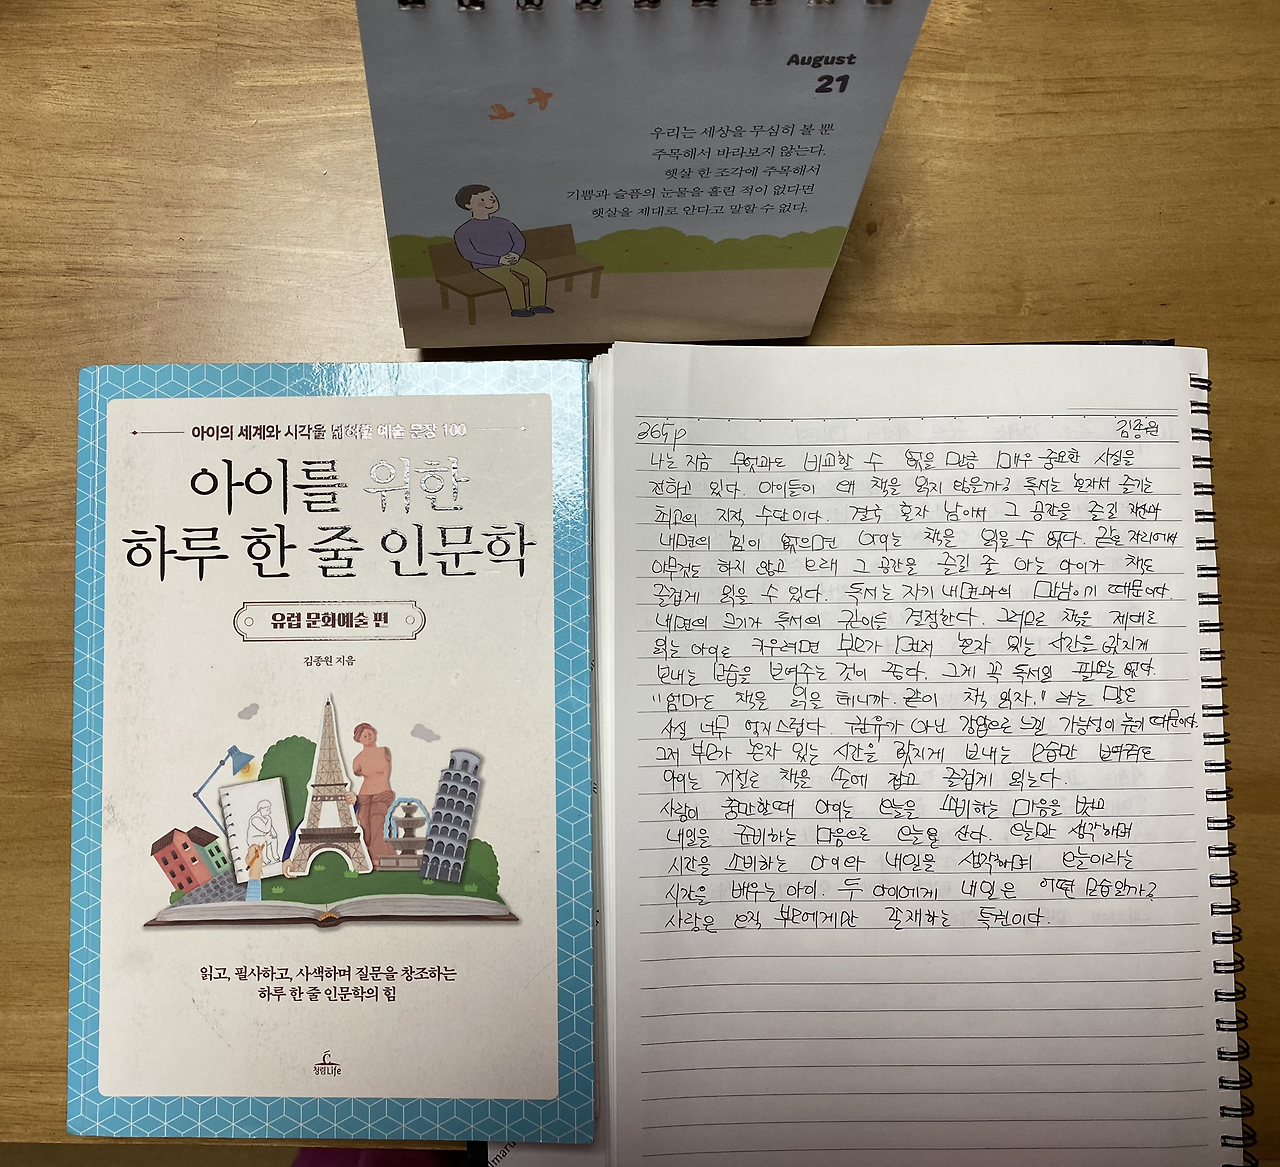 August
21
우리는 세상을 무심히 볼 뿐
주목해서 바라보지 않는다.
햇살 한 조각에 주목해서
기쁨과 슬픔의 눈물을 흘린 적이 없다면
햇살을 제대로 안다고 말할 수 없다.
아이의 세계와 시각을 넓혀줄 예술 문장 100
아이를 위한
하루 한 줄 인문학
유럽 문화예술 편
김종원 지음
읽고, 필사하고, 사색하며 질문을 창조하는
하루 한 줄 인문학의 힘
청림Life
365p 김종원
나는 지금 무엇과도 비교할 수 없을 만큼 매우 중요한 사실을
전하고 있다. 아이들이 왜 책을 읽지 않을까? 독서는 혼자서 즐기는
최고의 지적 수단이다. 결국 혼자 남아서 그 공간을 즐길
내면의 힘이 없으면 아이는 책을 읽을 수 없다. 같은 자리에서
아무것도 하지 않고 오래 그 공간을 즐길 줄 아는 아이가 책도
즐겁게 읽을 수 있다. 독서는 자기 내면과의 만남이기 때문이다.
내면의 크기가 독서의 깊이를 결정한다. 그러므로 책을 제대로
읽는 아이로 키우려면 부모가 먼저 혼자 있는 시간을 값지게
보내는 모습을 보여주는 것이 좋다. 그게 꼭 독서일 필요는 없다.
"엄마도 책을 읽을 테니까. 같이 책 읽자." 라는 말은
사실 너무 억지스럽다. 권유가 아닌 강압으로 느낄 가능성이 높기 때문이다.
그저 부모가 혼자 있는 시간을 값지게 보내는 모습만 보여줘도
아이는 저절로 책을 손에 잡고 즐겁게 읽는다.
사랑이 충만할때 아이는 오늘을 소비하는 마음을 벗고
내일을 준비하는 마음으로 오늘을 산다. 오늘만 생각하며
시간을 소비하는 아이와 내일을 생각하며 오늘이라는
시간을 배우는 아이. 두 아이에게 내일은 어떤 모습일까?
사랑은 오직 부모에게만 존재하는 특권이다.